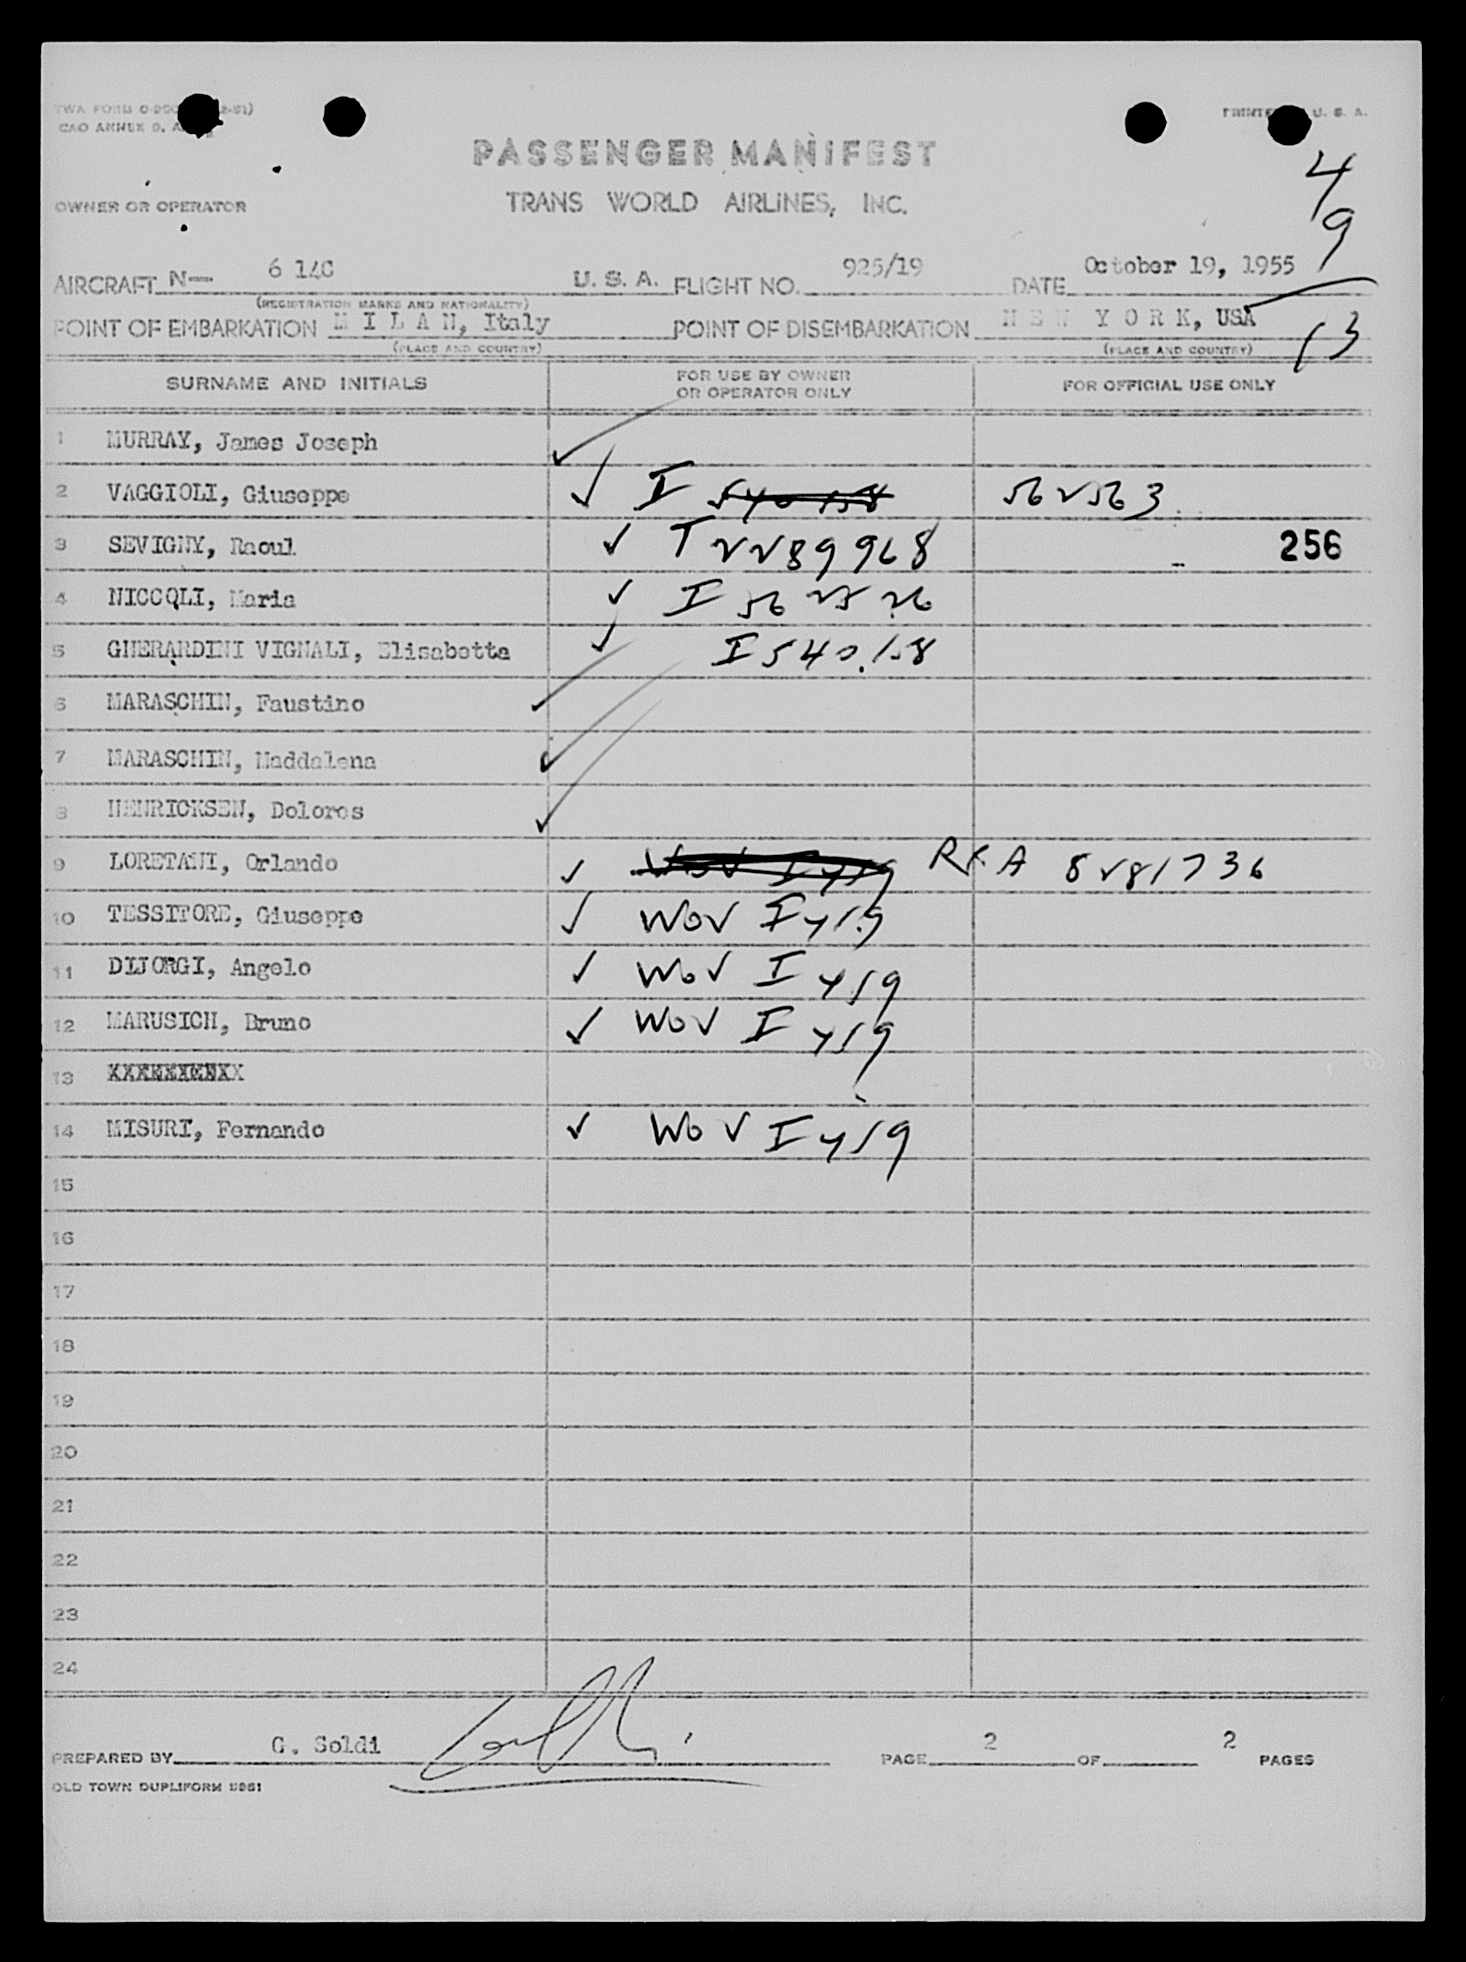 TWA FORM
PRINTED U. S. A.
PASSENGER MANIFEST
4
OWNER OR OPERATOR TRANS WORLD AIRLINES, INC.
9
AIRCRAFT N— 6 14C U. S. A. FLIGHT NO. 925/19 DATE October 19, 1955
(REGISTRATION MARKS AND NATIONALITY)
POINT OF EMBARKATION M I L A N, Italy POINT OF DISEMBARKATION N E W Y O R K, USA 13
(PLACE AND COUNTRY) (PLACE AND COUNTRY)
SURNAME AND INITIALS FOR USE BY OWNER OR OPERATOR ONLY FOR OFFICIAL USE ONLY
1 MURRAY, James Joseph ✓
2 VAGGIOLI, Giuseppe ✓ I 540 158 562563
3 SEVIGNY, Raoul ✓ T 2289968 256
4 NICCOLI, Maria ✓ I 562526
5 GHERARDINI VIGNALI, Elisabetta ✓ I 540.158
6 MARASCHIN, Faustino ✓
7 MARASCHIN, Maddalena ✓
8 HENRICKSEN, Dolores ✓
9 LORETANI, Orlando ✓ WOV I 419 8281736
10 TESSITORE, Giuseppe ✓ WOV I 419
11 DIJORGI, Angelo ✓ WOV I 419
12 MARUSICH, Bruno ✓ WOV I 419
13
14 MISURI, Fernando ✓ WOV I 419
15
16
17
18
19
20
21
22
23
24
PREPARED BY G. Soldi PAGE 2 OF 2 PAGES
OLD TOWN DUPLIFORM